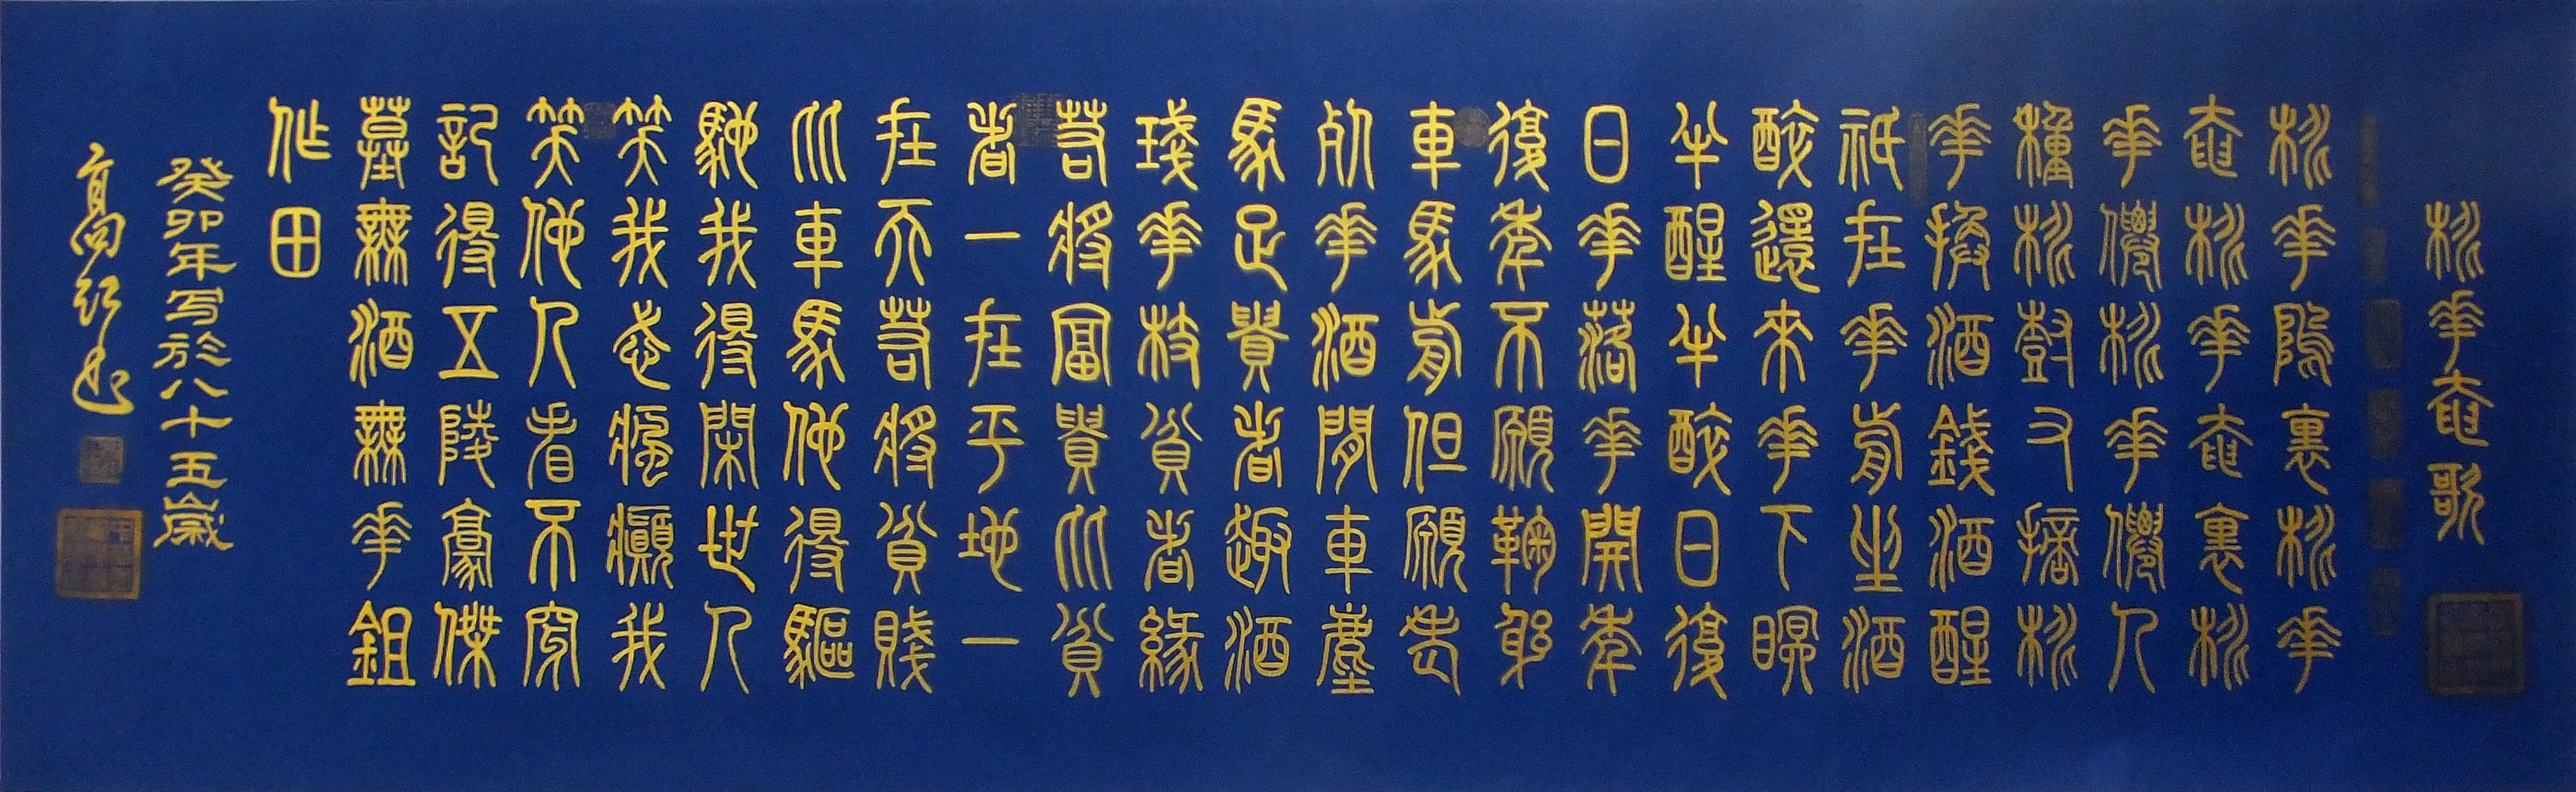 桃花庵歌
桃花隖裏桃花
庵桃花庵裏桃
花僊桃花僊人
種桃樹又摘桃
花換酒錢酒醒
祇在花前坐酒
醉還來花下眠
半醒半醉日復
日花落花開年
復年不願鞠躬
車馬前但願老
死花酒間車塵
馬足貴者趣酒
琖花枝貧者緣
若將富貴比貧
者一在平地一
在天若將貧賤
比車馬他得驅
馳我得閑世人
笑我忒瘋癲我
笑他人看不穿
記得五陵豪傑
墓無酒無花鉏
作田
癸卯年写於八十五歲
高